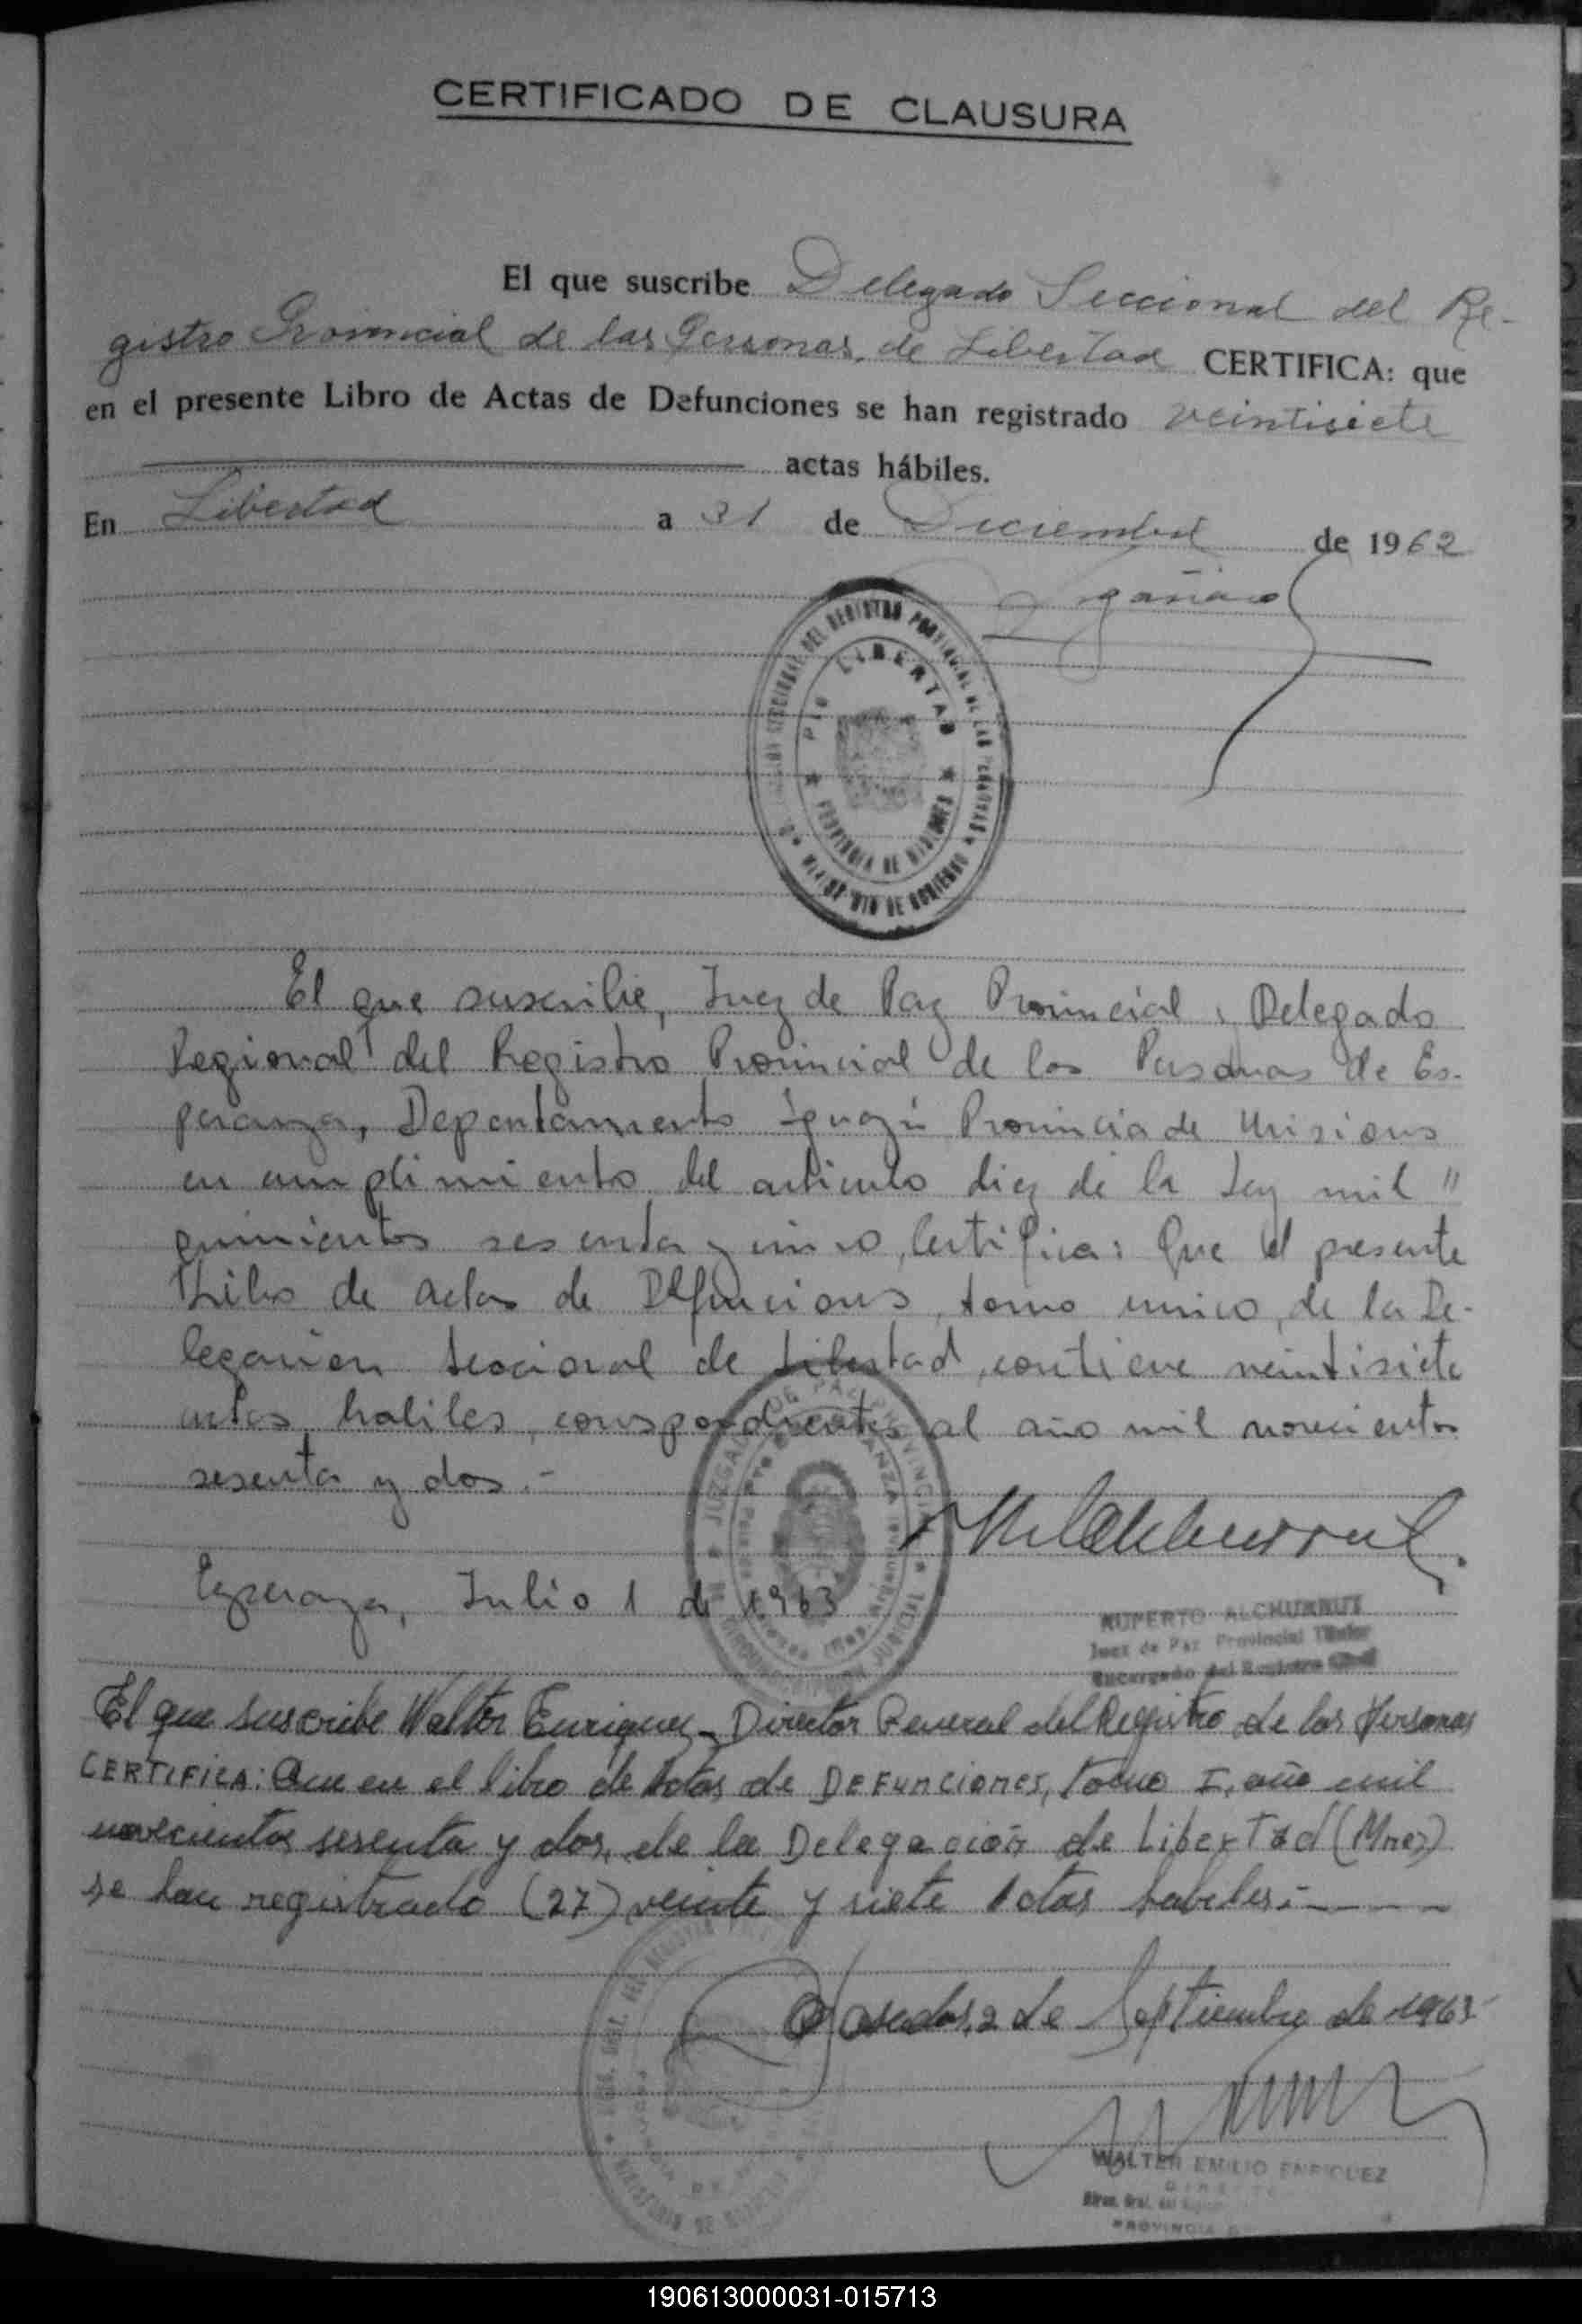 CERTIFICADO DE CLAUSURA
El que suscribe Delegado Seccional del Re-
gistro Provincial de las Personas, de Libertad CERTIFICA: que
en el presente Libro de Actas de Defunciones se han registrado veintisiete
actas hábiles.
En Libertad a 31 de Diciembre de 1962
DEL REGISTRO PROVINCIAL DE LAS PERSONAS
LIBERTAD
PROVINCIA DE MISIONES
MINISTERIO DE GOBIERNO
El que suscribe, Juez de Paz Provincial y Delegado
Regional del Registro Provincial de las Personas de Es-
peranza, Departamento Iguazú Provincia de Misiones
en cumplimiento del articulo diez de la Ley mil "
quinientos sesenta y cinco, Certifica: Que el presente
Libro de actas de Defunciones, tomo unico, de la De-
legación Seccional de Libertad, contiene veintisiete
actas habiles, correspondientes al año mil novecientos
sesenta y dos.-
Esperanza, Julio 1 de 1963
RUPERTO ALCHURRUT
Juez de Paz Provincial Titular
Encargado del Registro Civil
El que suscribe Walter Enriquez - Director General del Registro de las Personas
CERTIFICA: Que en el libro de Actas de DEFunciones, Tomo I, año mil
novecientos sesenta y dos, de la Delegación de Libertad (Mnes)
se han registrado (27) veinte y siete Actas habiles:-
Posadas, 2 de Septiembre de 1963
WALTER EMILIO ENRIQUEZ
PROVINCIA
190613000031-015713